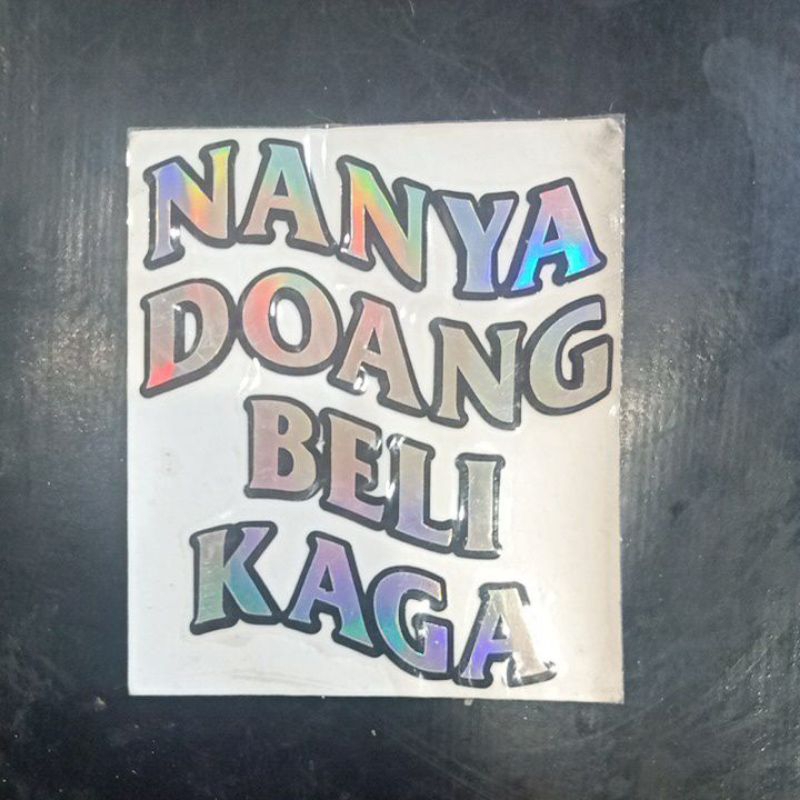 NANYA
DOANG
BELI
KAGA